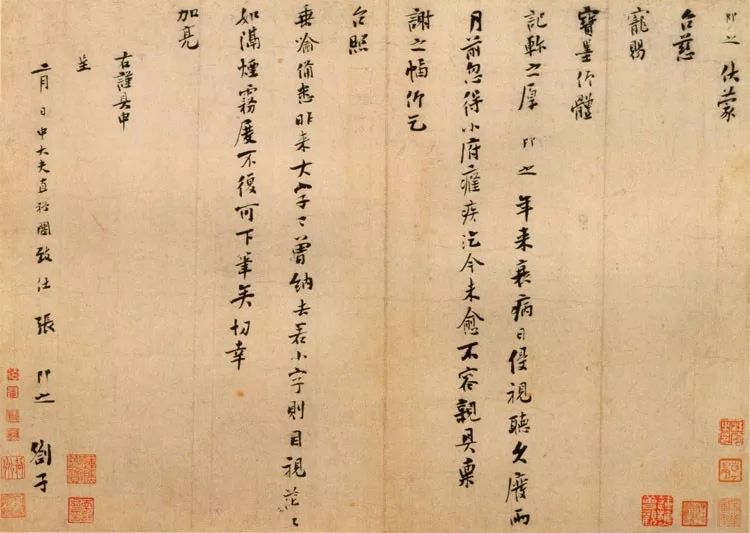 即之 伏蒙
台慈
寵賜
寶墨仍體
記軫之厚 即之 年来衰病日侵視聽久廢兩
月前忽得小府癃疾迄今未愈不容親具稟
謝之幅仍乞
台照
垂喻備悉昨来大字已曾納去若小字則目視茫々
如滿煙霧屢不復可下筆矣切幸
加亮
右謹具申
呈
二月 日中大夫直祕閣致仕 張 即之 劄子